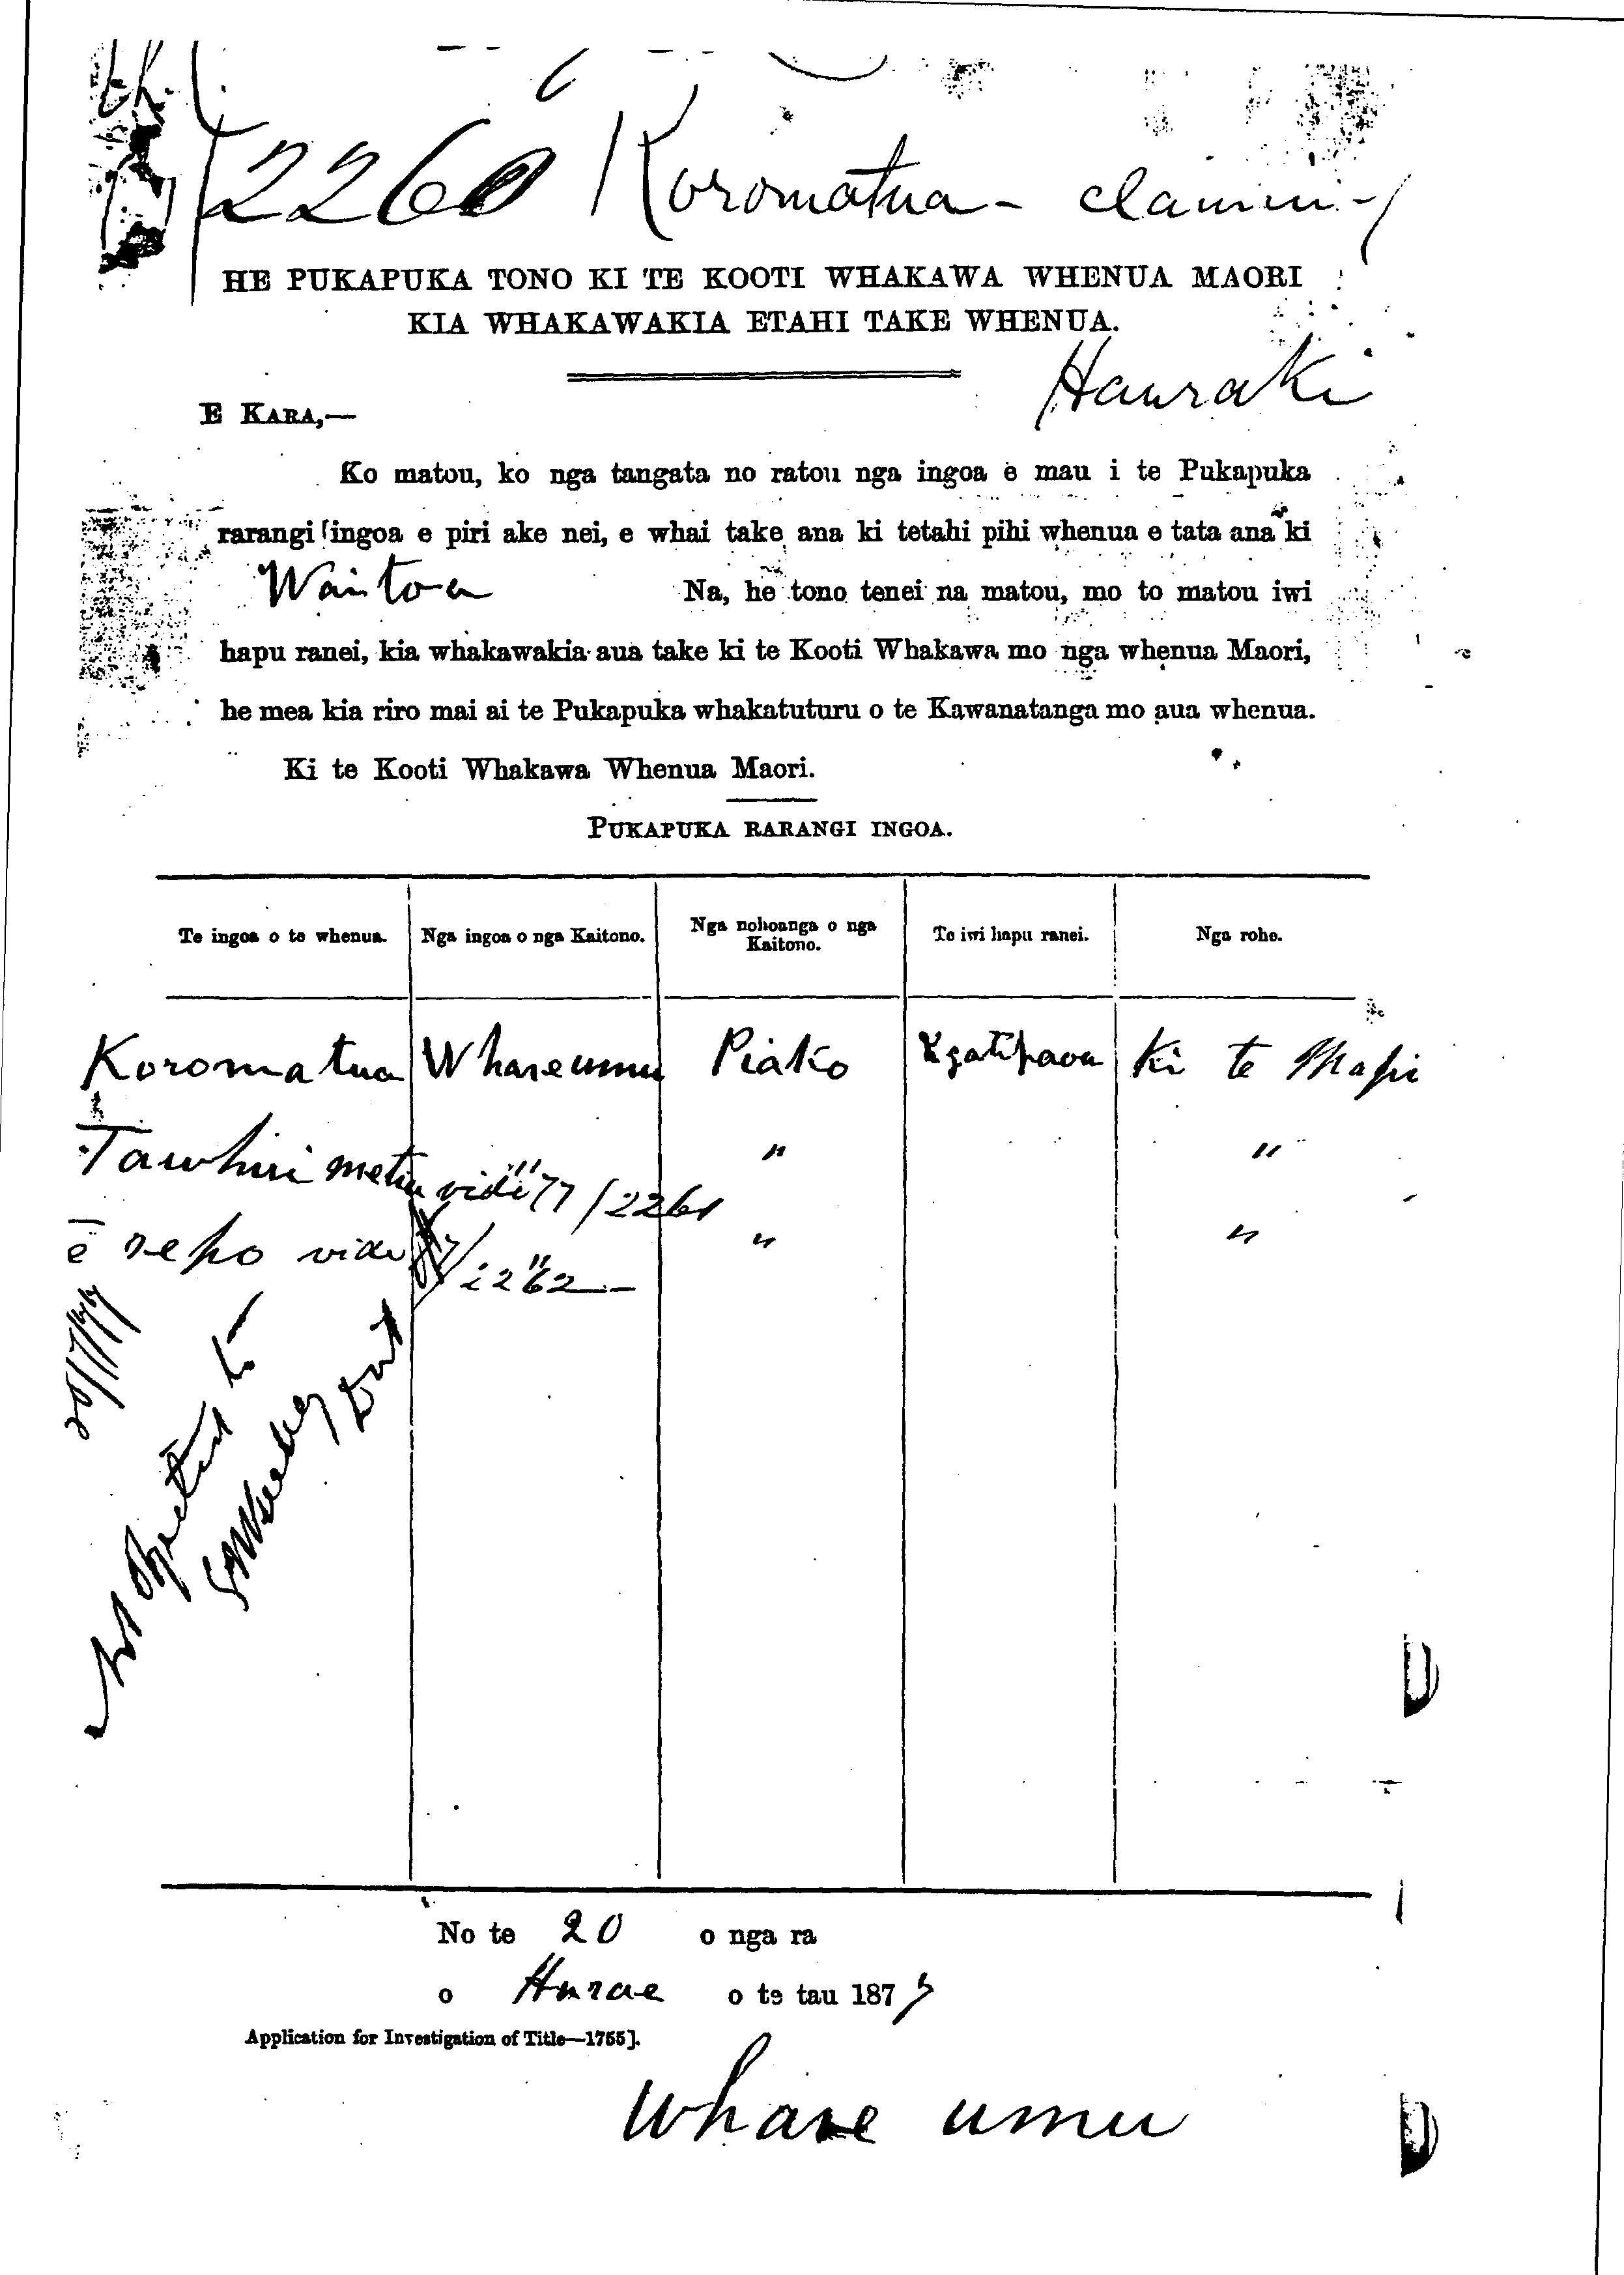 2260 Koromatua - claim
HE PUKAPUKA TONO KI TE KOOTI WHAKAWA WHENUA MAORI
KIA WHAKAWAKIA ETAHI TAKE WHENUA.
Hauraki
E KARA,—
Ko matou, ko nga tangata no ratou nga ingoa e mau i te Pukapuka
rarangi ingoa e piri ake nei, e whai take ana ki tetahi pihi whenua e tata ana ki
Waitoa Na, he tono tenei na matou, mo to matou iwi
hapu ranei, kia whakawakia aua take ki te Kooti Whakawa mo nga whenua Maori,
he mea kia riro mai ai te Pukapuka whakatuturu o te Kawanatanga mo aua whenua.
Ki te Kooti Whakawa Whenua Maori.
PUKAPUKA RARANGI INGOA.
Te ingoa o te whenua. Nga ingoa o nga Kaitono. Nga nohoanga o nga Kaitono. Te iwi hapu ranei. Nga rohe.
Koromatua Whareumu Piako Ngatipaoa Ki te Mapi
Tawhiri matia vide 77/2261 " "
e repo vide 77/2262 " "
20/7/77
Not objected to
No te 20 o nga ra
o Hurae o te tau 1877
Application for Investigation of Title—1755].
Whare umu